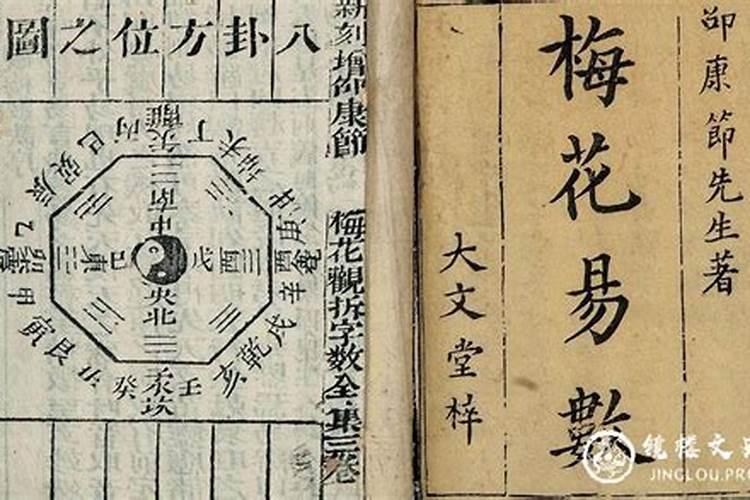 邵康節先生著
梅花易數
大文堂梓
新刻增邵康節
梅花觀拆字數全集三卷
八卦方位之圖
巳 丙 午 離 丁 未 坤 申
庚 酉 兌 辛
戌 乾 亥
壬 子 坎 癸
丑 艮 寅
甲 卯 震 乙
辰 巽
南
中
央
北
東 己
戊 酉
镜楼文
JINGLOU.PR